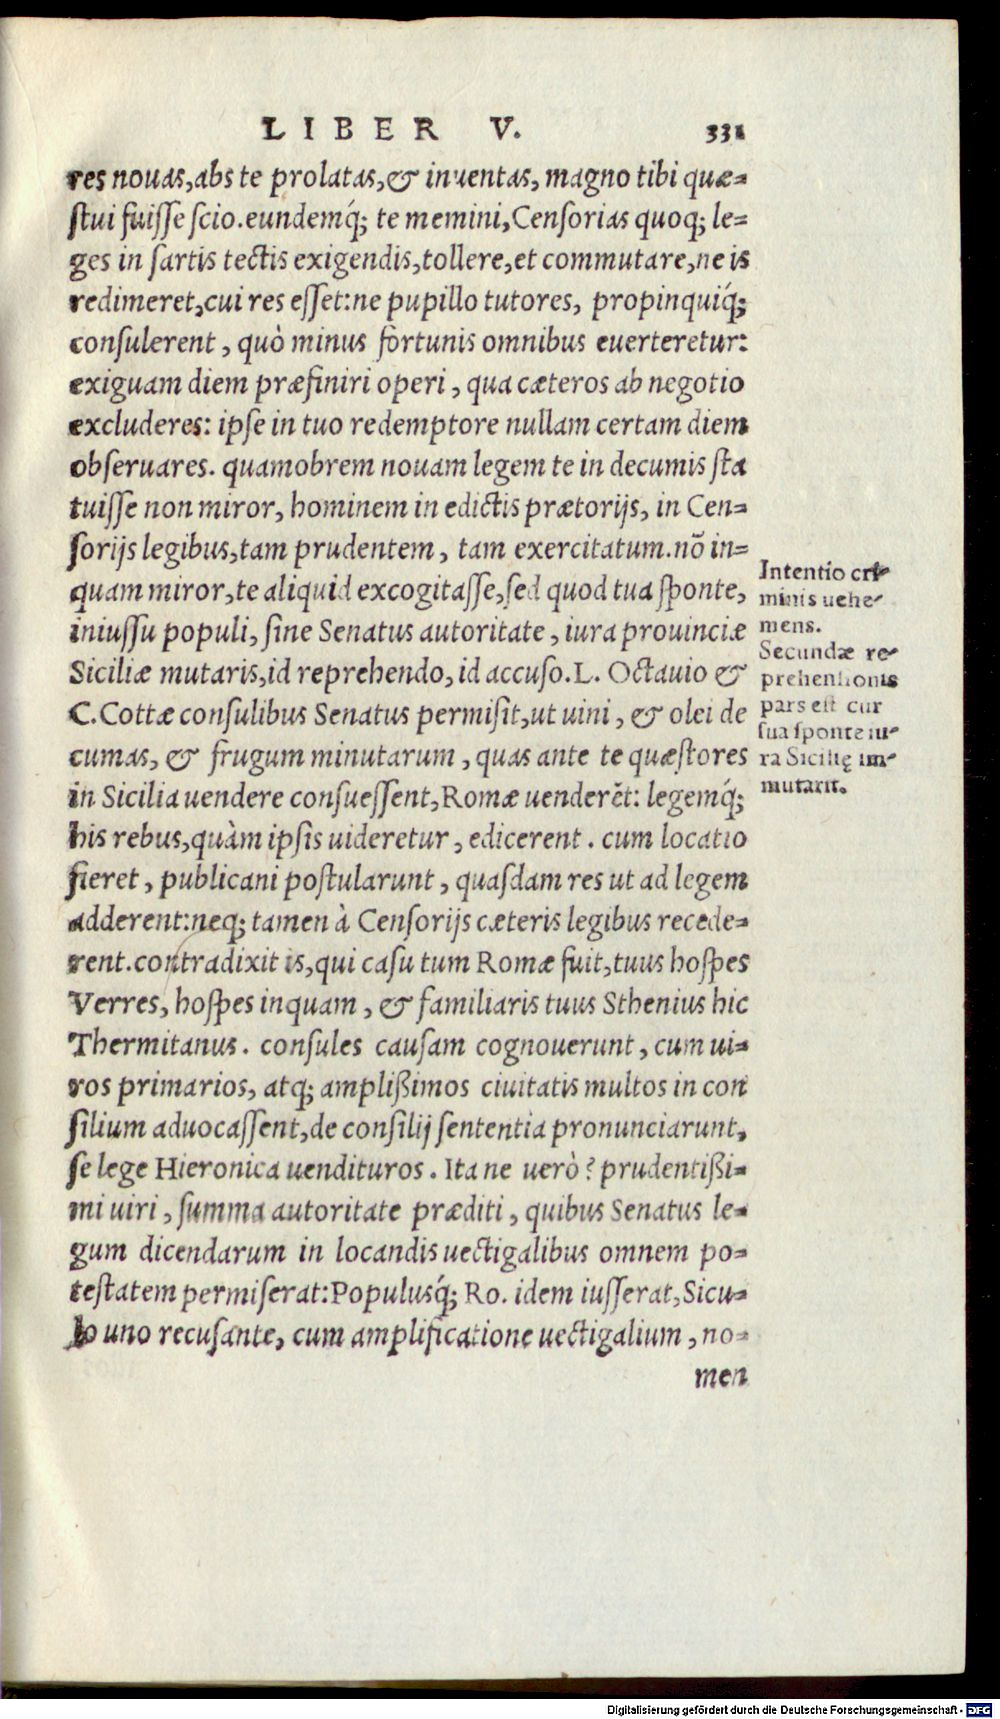 LIBER V. 331
res nouas,abs te prolatas,& inuentas, magno tibi quæ-
stui fuisse scio.eundemq́; te memini,Censorias quoq; le-
ges in sartis tectis exigendis,tollere,et commutare,ne is
redimeret,cui res esset:ne pupillo tutores, propinquiq́;
consulerent, quò minus fortunis omnibus euerteretur:
exiguam diem præfiniri operi, qua cæteros ab negotio
excluderes: ipse in tuo redemptore nullam certam diem
obseruares. quamobrem nouam legem te in decumis sta
tuisse non miror, hominem in edictis prætorijs, in Cen-
sorijs legibus,tam prudentem, tam exercitatum.nõ in-
quam miror,te aliquid excogitasse,sed quod tua sponte,
iniussu populi, sine Senatus autoritate, iura prouinciæ
Siciliæ mutaris,id reprehendo, id accuso.L. Octauio &
C.Cottæ consulibus Senatus permisit,ut uini, & olei de
cumas, & frugum minutarum, quas ante te quæstores
in Sicilia uendere consuessent,Romæ uenderẽt: legemq́;
his rebus,quàm ipsis uideretur, edicerent. cum locatio
fieret, publicani postularunt, quasdam res ut ad legem
adderent:neq; tamen à Censorijs cæteris legibus recede-
rent.contradixit is,qui casu tum Romæ fuit,tuus hospes
Verres, hospes inquam, & familiaris tuus Sthenius hic
Thermitanus. consules causam cognouerunt, cum ui-
ros primarios, atq; amplißimos ciuitatis multos in con
silium aduocassent,de consilij sententia pronunciarunt,
se lege Hieronica uendituros. Ita ne uerò? prudentißi-
mi uiri, summa autoritate præditi, quibus Senatus le-
gum dicendarum in locandis uectigalibus omnem po-
testatem permiserat:Populusq́; Ro. idem iusserat,Sicu-
lo uno recusante, cum amplificatione uectigalium, no-
men
Intentio cri-
minis uehe-
mens.
Secundæ re-
prehensionis
pars est cur
sua sponte iu-
ra Sicilię im-
mutarit.
Digitalisierung gefördert durch die Deutsche Forschungsgemeinschaft - DFG